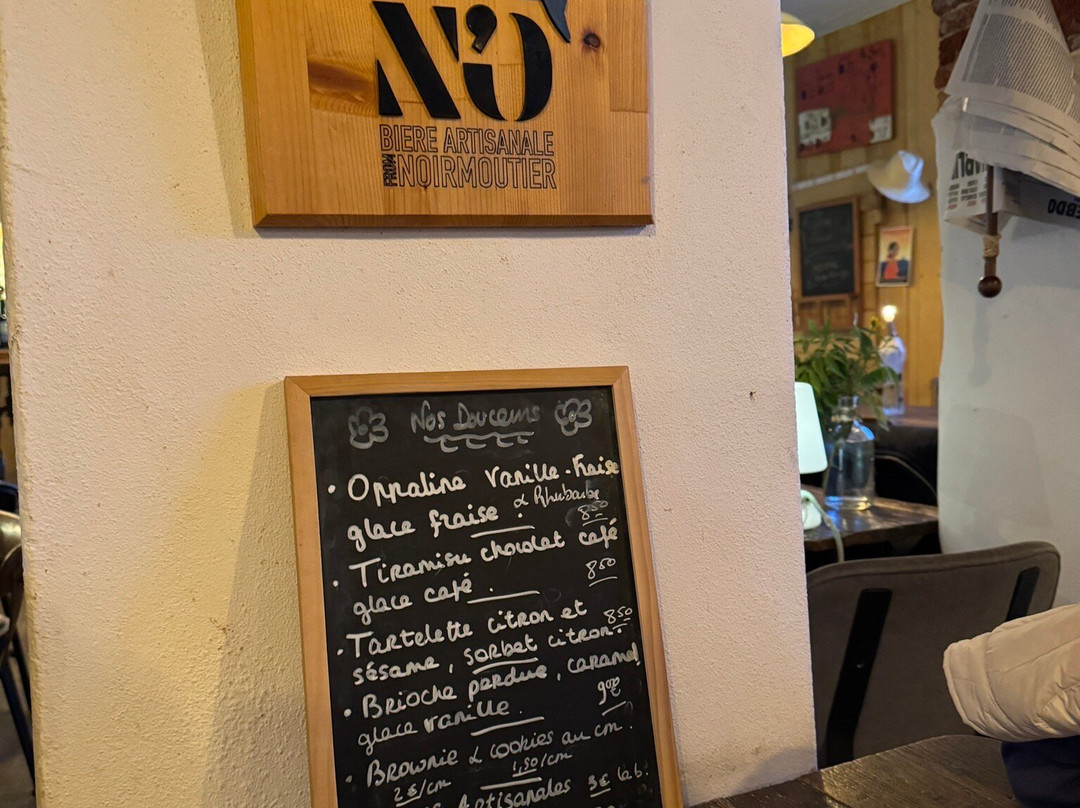 N'O
BIERE ARTISANALE
FROM NOIRMOUTIER
Nos Douceurs
• Oppaline Vanille-Fraise
& Rhubarbe
glace fraise. 8,50
• Tiramisu chocolat café
glace café. 8,50
• Tartelette citron et 8,50
sésame, sorbet citron.
• Brioche perdue, caramel
glace vanille. 9,00€
• Brownie & cookies au cm.
2€/cm 1,50/cm
Artisanales 3€ la b.